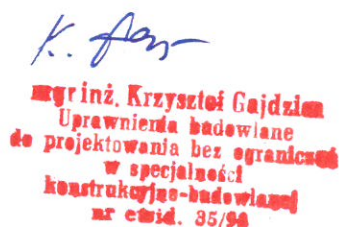 mgr inż. Krzysztof Gajdzion
Uprawnienia budowlane
do projektowania bez ograniczeń
w specjalności
konstrukcyjno-budowlanej
nr ewid. 35/94